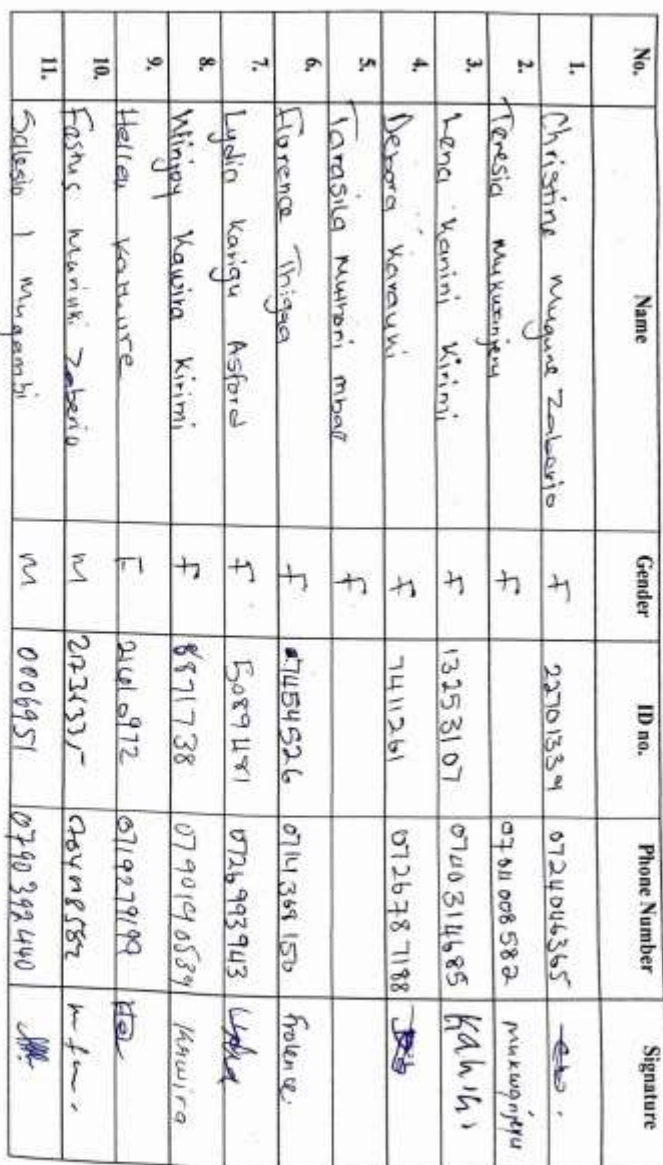 No. Name Gender ID no. Phone Number Signature
1. Christine Mugure Zaberio F 22701339 0724046365
2. Teresia Mukwanjeru F 0704008582 mukwanjeru
3. Lena Kanini Kirimi F 13253107 0740314685 Kahihi
4. Debora Karauki F 7411261 0726787188
5. Tarasila Muthoni mbae F
6. Florence Thigaa F 7454526 0714369150 frolence
7. Lydia Karigu Asford F 5089481 0726993943 Lydia
8. Winjoy Kawira Kirimi F 8871738 0790190539 Kawira
9. Hellen F
10. Fastus Muriuki Zaberio M
11. Salesio I Mugambi M 0006951